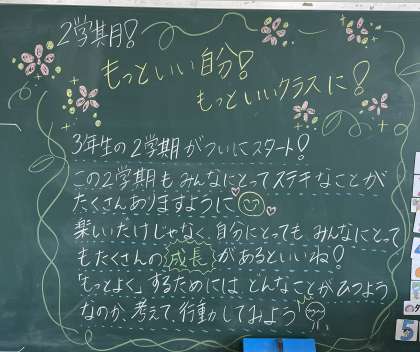 2学期！
もっといい自分！
もっといいクラスに！
3年生の2学期がついにスタート！
この2学期もみんなにとってステキなことが
たくさんありますように
楽しいだけじゃなく、自分にとっても みんなにとって
もたくさんの 成長 があるといいね！
「もっとよく」するためには どんなことがひつよう
なのか、考えて行動してみよう
5